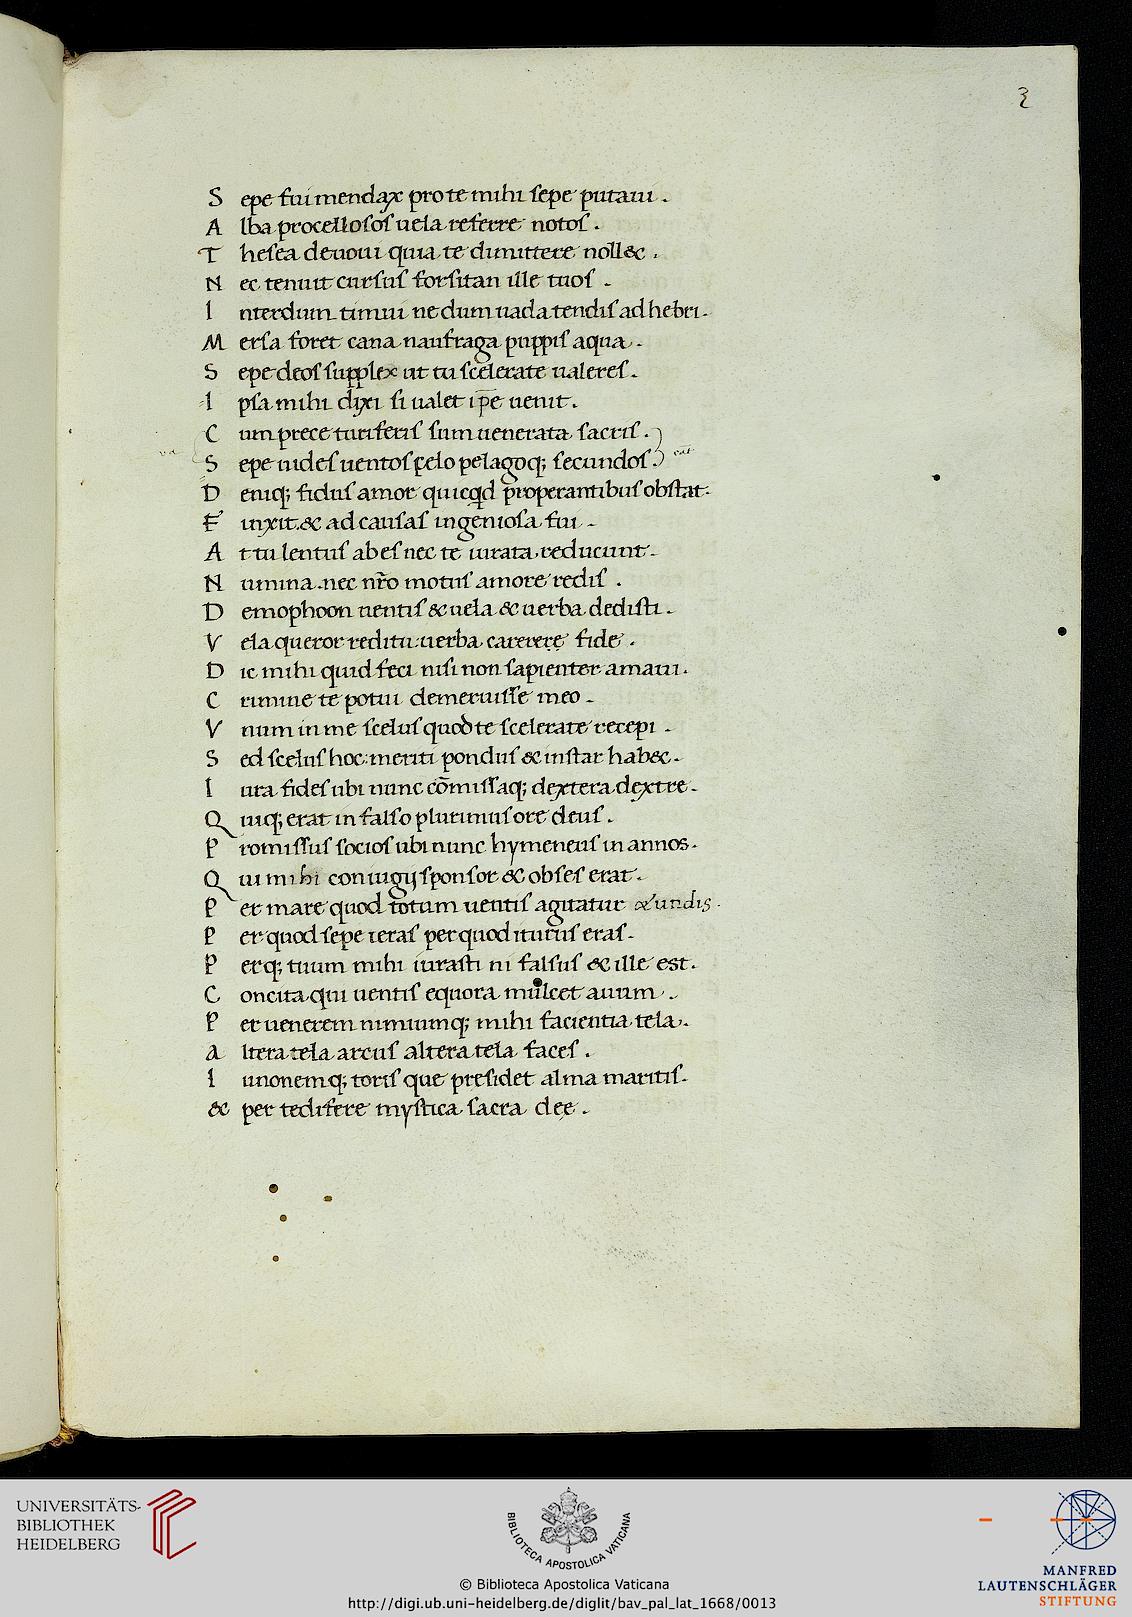 3
S epe fui mendax pro te mihi sepe putaui .
A lba procellosos uela referre notos .
T hesea deuoui quia te dimittere noll&c .
N ec tenuit cursus forsitan ille tuos .
I nterdum timui ne dum uada tendis ad hebri .
M ersa foret cana naufraga puppis aqua .
S epe deos supplex ut tu scelerate ualeres .
I psa mihi dixi si ualet ip̄e uenit .
C um prece turiferis sum uenerata sacris .
S epe uides uentos celo pelagoq; secundos .
D eniq; fidus amor quicqd properantibus obstat .
F inxit & ad causas ingeniosa fui .
A t tu lentus abes nec te iurata reducunt .
N umina . nec nr̄o motus amore redis .
D emophoon uentis & uela & uerba dedisti .
V ela queror reditu uerba carerere fide .
D ic mihi quid feci nisi non sapienter amaui .
C rimine te potui demeruisse meo .
V num in me scelus quod te scelerate recepi .
S ed scelus hoc meriti pondus & instar hab& .
I ura fides ubi nunc cōmissaq; dextera dextre .
Q uiq; erat in falso plurimus ore deus .
P romissus socios ubi nunc hymeneus in annos .
Q ui mihi coniugij sponsor & obses erat .
P er mare quod totum uentis agitatur & undis .
P er quod sepe ieras per quod iturus eras .
P erq; tuum mihi iurasti ni falsus & ille est .
C oncita qui uentis equora mulcet auum .
P er uenerem nimiumq; mihi facientia tela .
a ltera tela arcus altera tela faces .
I unonemq; toris que presidet alma maritis .
& per tedifere mystica sacra dee .
UNIVERSITÄTS-
BIBLIOTHEK
HEIDELBERG
BIBLIOTECA APOSTOLICA VATICANA
MANFRED
LAUTENSCHLÄGER
STIFTUNG
© Biblioteca Apostolica Vaticana
http://digi.ub.uni-heidelberg.de/diglit/bav_pal_lat_1668/0013